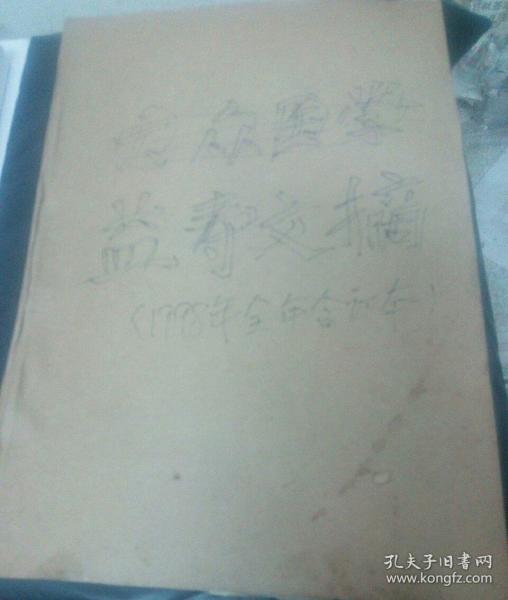 大众医学
益寿文摘
(1998年全年合订本)
孔夫子旧书网
www.kongfz.com